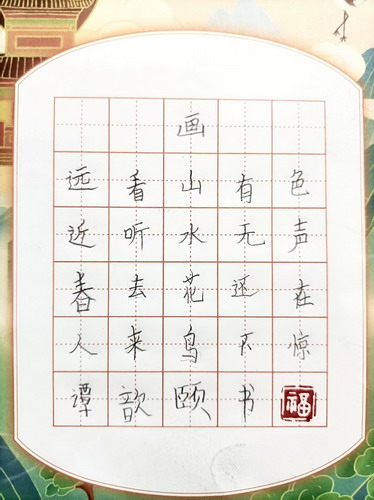 画
远看山有色
近听水无声
春去花还在
人来鸟不惊
谭歆颐书
福